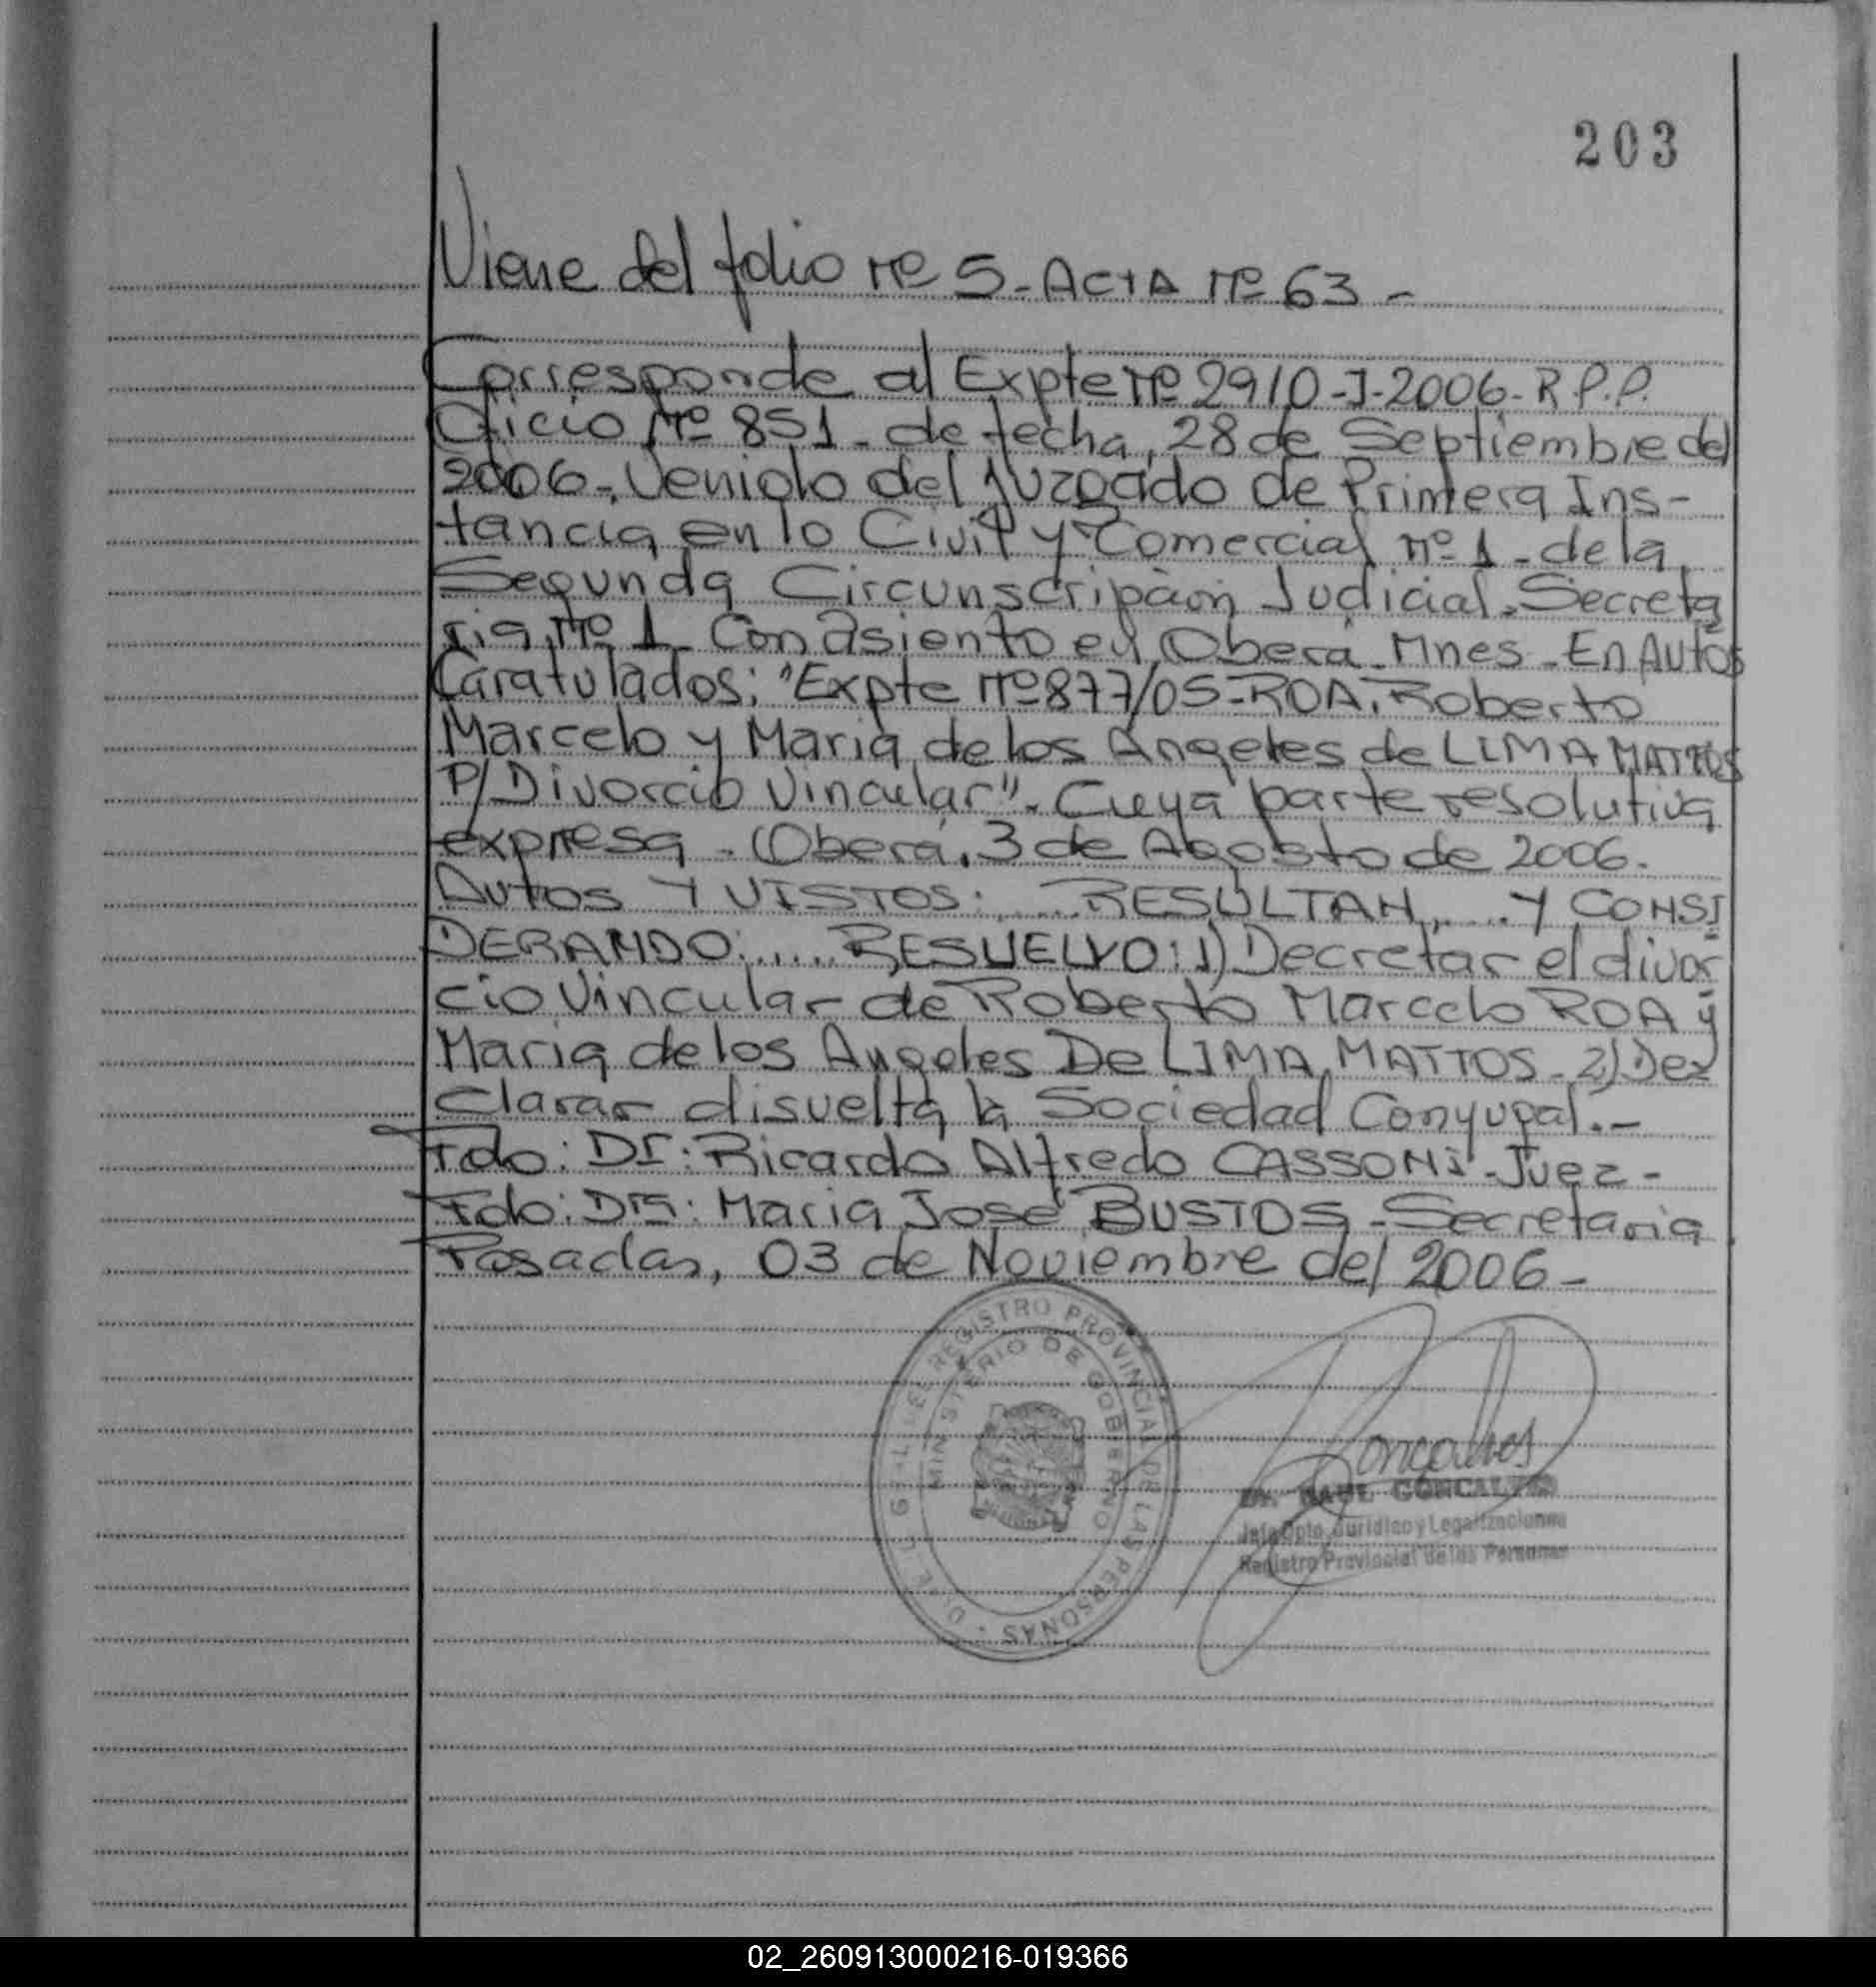 203
Viene del folio Nº 5 - ACTA Nº 63 -
Corresponde al Expte Nº 2910-J-2006- R.P.P.
Oficio Nº 851 - de fecha, 28 de Septiembre del
2006 -, Venido del Juzgado de Primera Ins-
tancia en lo Civil y Comercial nº 1 - de la
Segunda Circunscripción Judicial - Secreta
ria Nº 1 Con Asiento en Oberá - Mnes - En Autos
Caratulados: "Expte Nº 877/05 - ROA, Roberto
Marcelo y Maria de los Angeles de LIMA MATTOS
P/ Divorcio Vincular". Cuya parte resolutiva
expresa - Oberá, 3 de Agosto de 2006.
Autos Y VISTOS: ..... RESULTAN, .... Y CONSI
DERANDO: ..... RESUELVO: 1) Decretar el divor
cio Vincular de Roberto Marcelo ROA y
Maria de los Angeles De LIMA MATTOS - 2) De
clarar disuelta la Sociedad Conyugal.-
Fdo: Dr. Ricardo Alfredo CASSONI - Juez -
Fdo: Dra: Maria José BUSTOS - Secretaria
Posadas, 03 de Noviembre del 2006 -
REGISTRO PROVINCIAL DE LAS PERSONAS
MINISTERIO DE GOBIERNO
Goncalves
Dr. RAUL GONCALVES
Jefe Dpto. Jurídico y Legalizaciones
Registro Provincial de las Personas
02_260913000216-019366